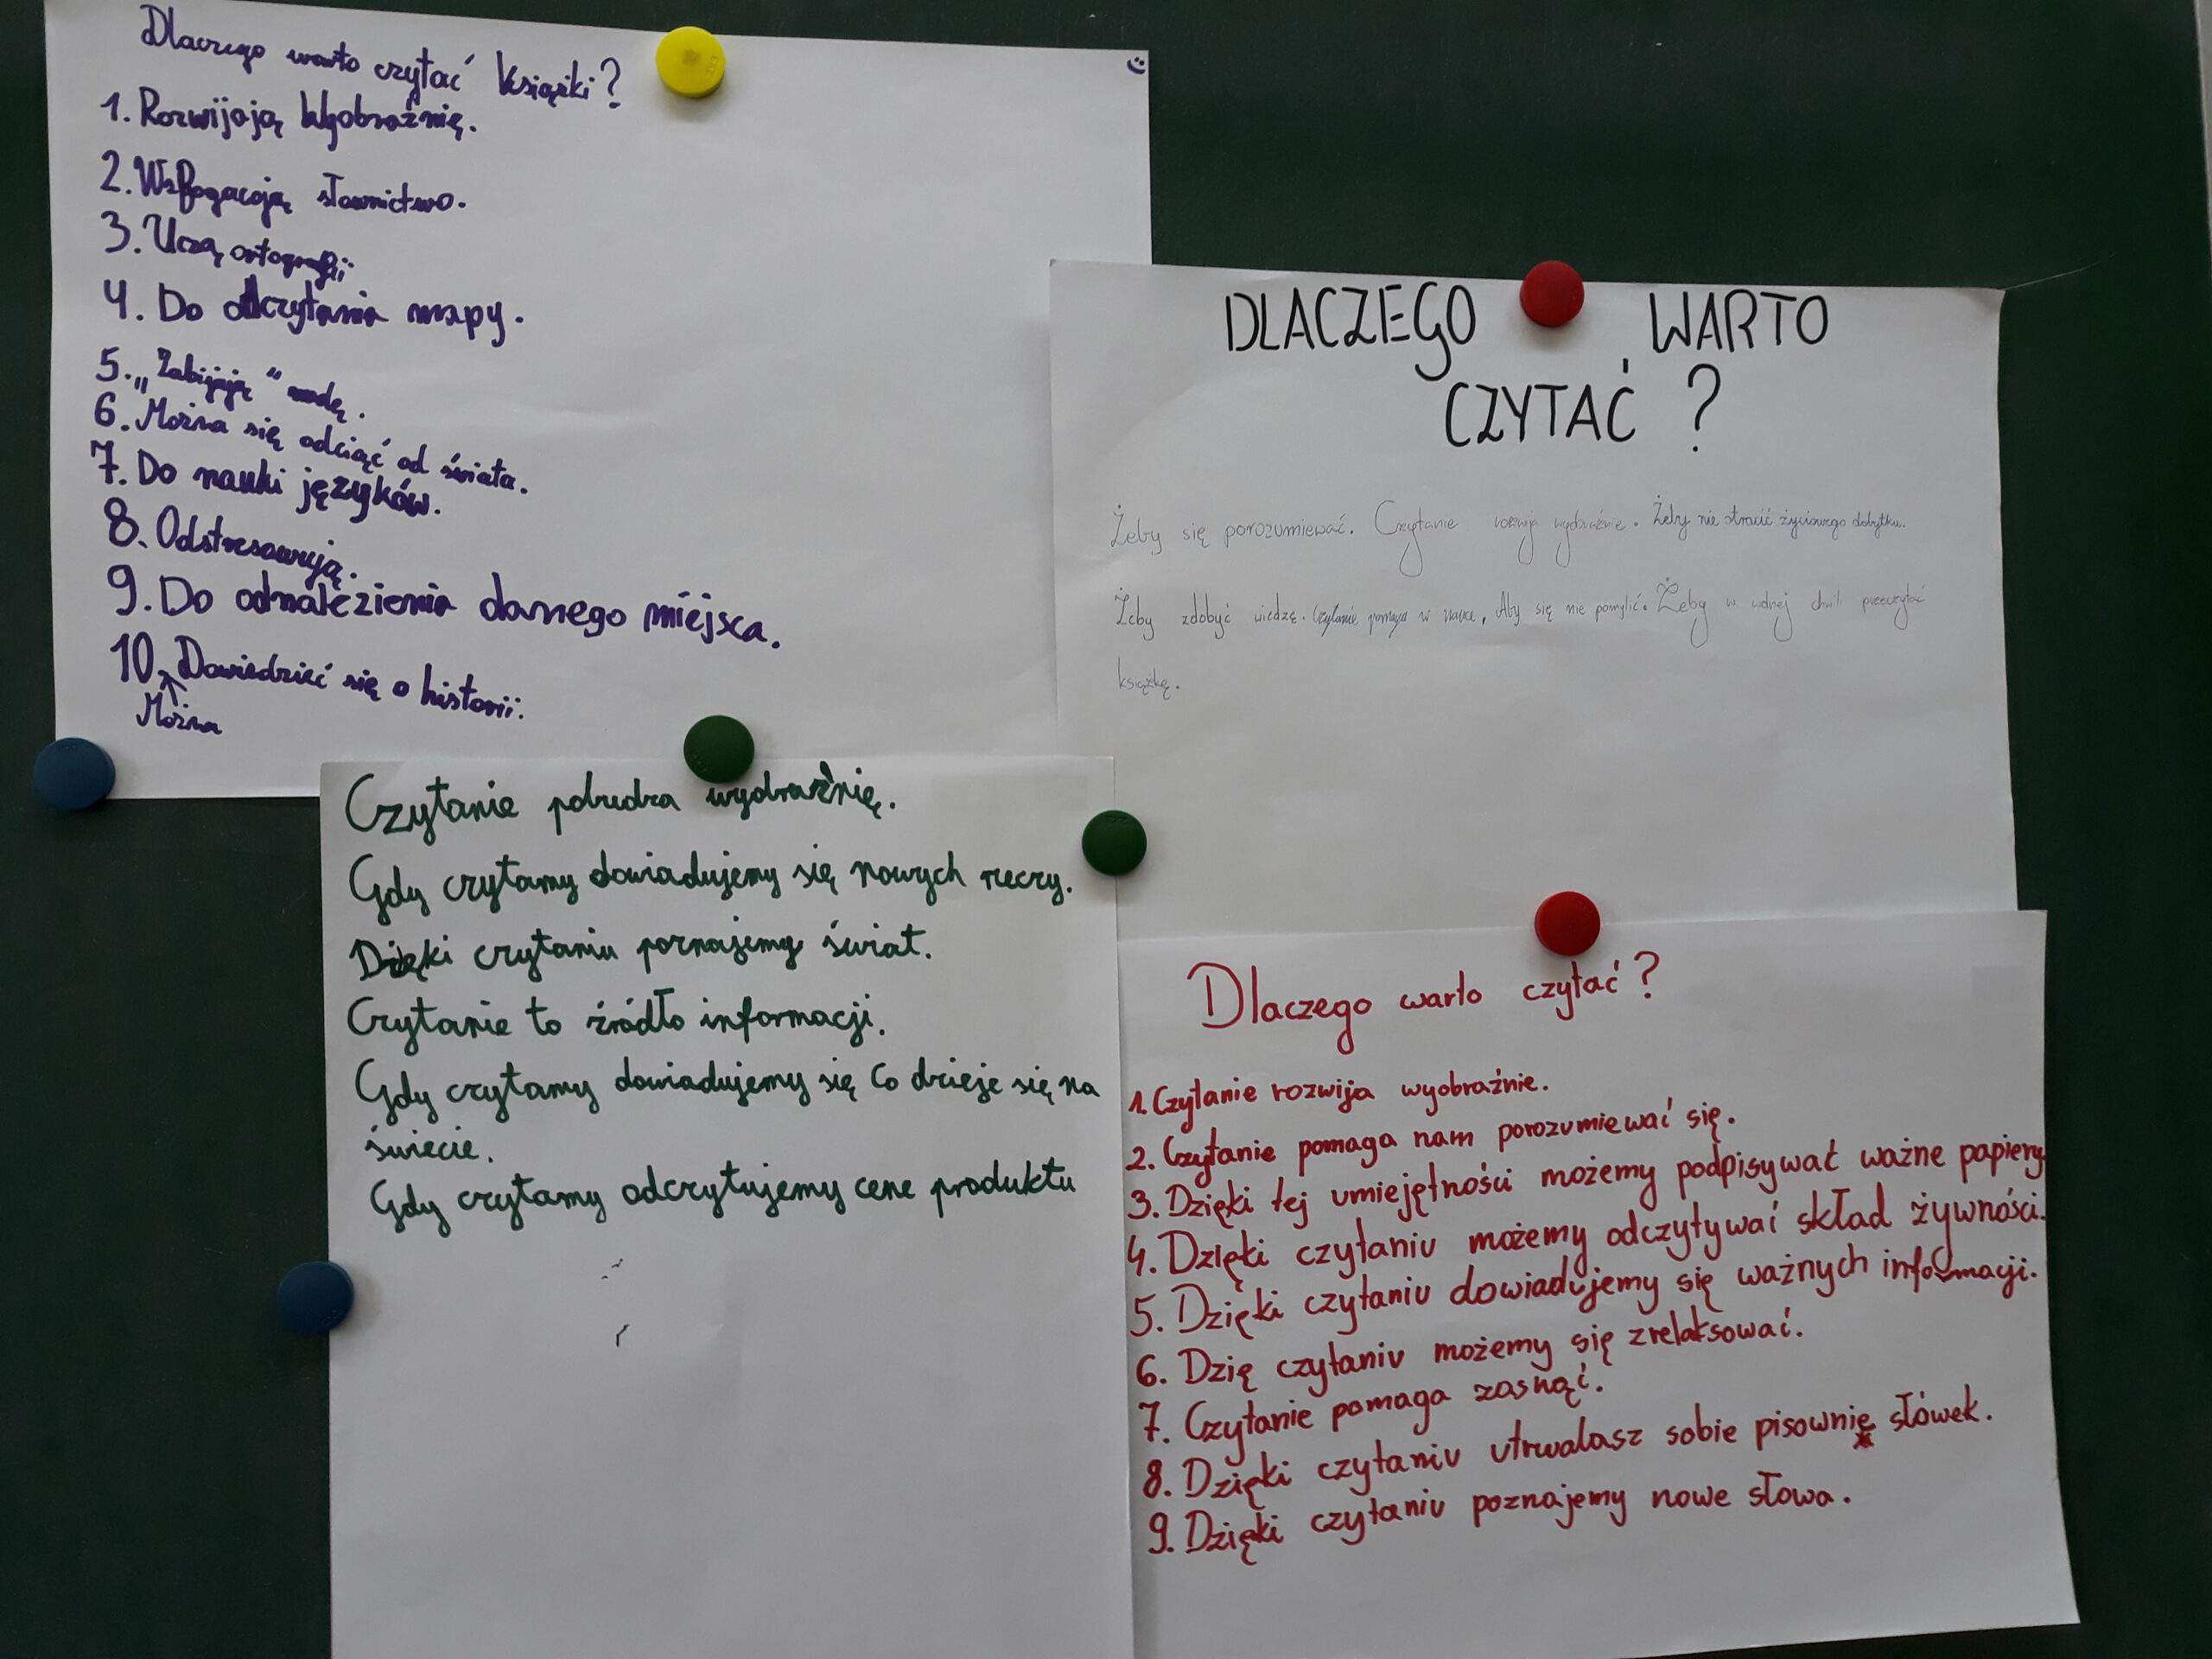 Dlaczego warto czytać książki?
1. Rozwijają Wyobraźnię.
2. Wzbogacają słownictwo.
3. Uczą ortografii
4. Do odczytania mapy.
5. „Zabijają“ nudę.
6. Można się odciąć od świata.
7. Do nauki języków.
8. Odstresowują.
9. Do odnalezienia danego miejsca.
10. Dowiedzieć się o historii.
Można
DLACZEGO WARTO
CZYTAĆ ?
Żeby się porozumiewać. Czytanie rozwija wyobraźnie. Żeby nie stracić życiowego dobytku.
Żeby zdobyć wiedzę. Czytanie pomaga w nauce. Aby się nie pomylić. Żeby w wolnej chwili przeczytać
książkę.
Czytanie pobudza wyobraźnię.
Gdy czytamy dowiadujemy się nowych rzeczy.
Dzięki czytaniu poznajemy świat.
Czytanie to źródło informacji.
Gdy czytamy dowiadujemy się Co dzieje się na
świecie.
Gdy czytamy odczytujemy cene produktu
Dlaczego warto czytać?
1. Czytanie rozwija wyobraźnie.
2. Czytanie pomaga nam porozumiewać się.
3. Dzięki tej umiejętności możemy podpisywać ważne papiery
4. Dzięki czytaniu możemy odczytywać skład żywności.
5. Dzięki czytaniu dowiadujemy się ważnych informacji.
6. Dzię czytaniu możemy się zrelaksować.
7. Czytanie pomaga zasnąć.
8. Dzięki czytaniu utrwalasz sobie pisownię słówek.
9. Dzięki czytaniu poznajemy nowe słowa.